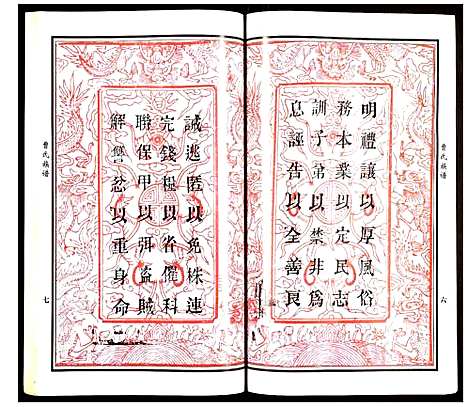 明禮讓以厚風俗
務本業以定民志
訓子弟以禁非為
息誣告以全善良
六
曹氏族谱
誡逃匿以免株連
完錢糧以省催科
聯保甲以弭盜賊
解讐忿以重身命
曹氏族谱
七